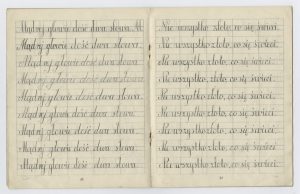 Mądrej głowie dość dwa słowa. M
Mądrej głowie dość dwa słowa.
Mądrej głowie dość dwa słowa.
Mądrej głowie dość dwa słowa.
Mądrej głowie dość dwa słowa.
Mądrej głowie dość dwa słowa.
Mądrej głowie dość dwa słowa.
Mądrej głowie dość dwa słowa.
Mądrej głowie dość dwa słowa.
Nie wszystko złoto, co się świeci.
Nie wszystko złoto, co się świeci.
Nie wszystko złoto, co się świeci.
Nie wszystko złoto, co się świeci.
Nie wszystko złoto, co się świeci.
Nie wszystko złoto, co się świeci.
Nie wszystko złoto, co się świeci.
Nie wszystko złoto, co się świeci.
Nie wszystko złoto, co się świeci.